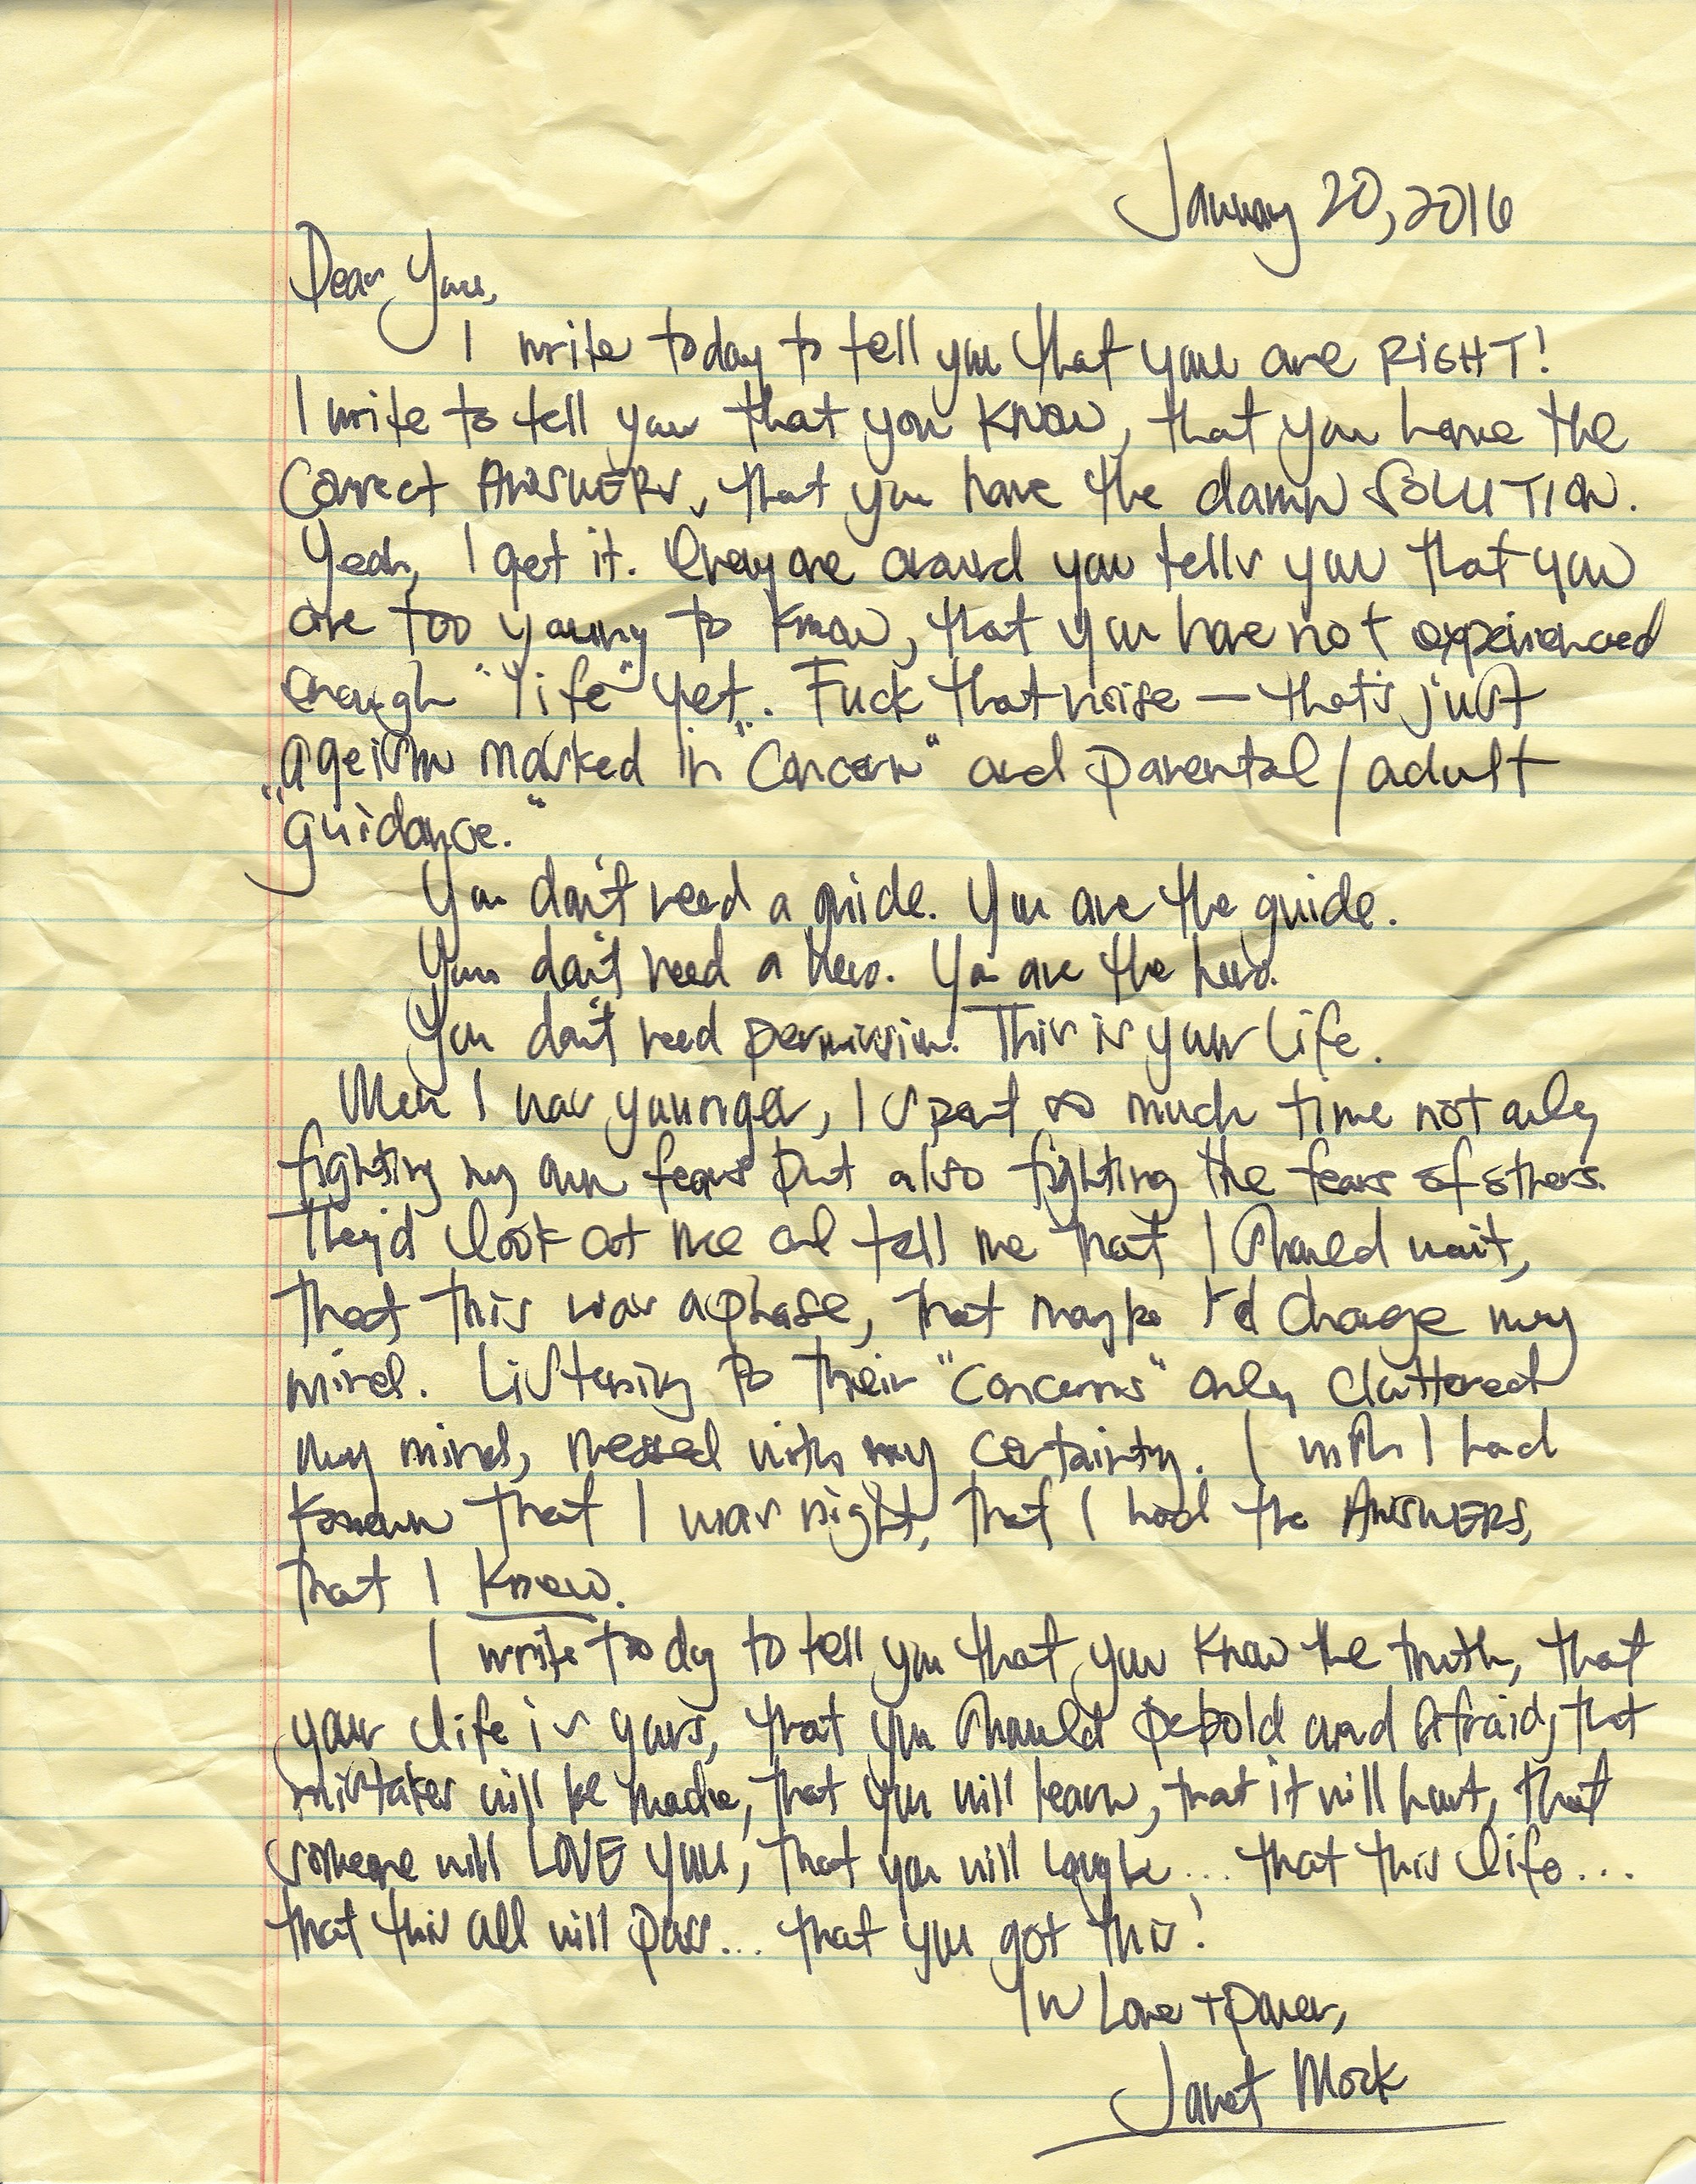 January 20, 2016
Dear You,
I write today to tell you that you are RIGHT!
I write to tell you that you know, that you have the
correct ANSWERS, that you have the damn SOLUTION.
Yeah, I get it. Everyone around you tells you that you
are too young to know, that you have not experienced
enough "life" yet. Fuck that noise — that's just
ageism masked in "concern" and parental/adult
"guidance."
You don't need a guide. You are the guide.
You don't need a hero. You are the hero.
You don't need permission. This is your life.
When I was younger, I spent so much time not only
fighting my own fears but also fighting the fears of others.
They'd look at me and tell me that I should wait,
that this was a phase, that maybe I'd change my
mind. Listening to their "concerns" only cluttered
my mind, messed with my certainty. I wish I had
known that I was right, that I had the ANSWERS,
that I know.
I write today to tell you that you know the truth, that
your life is yours, that you should be bold and afraid, that
mistakes will be made, that you will learn, that it will hurt, that
someone will LOVE you, that you will laugh... that this life...
that this all will pass... that you got this!
In Love + Power,
Janet Mock